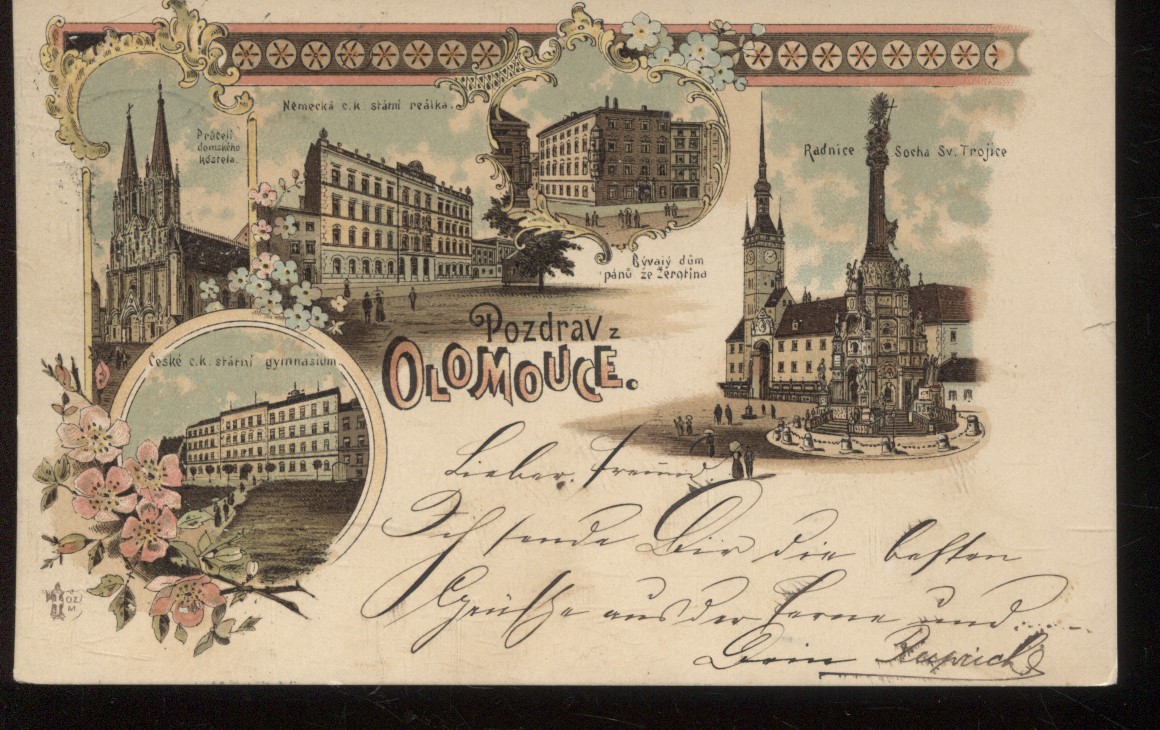 Průčelí
domského
kostela.
Německá c.k. státní reálka.
Bývalý dům
pánů ze Žerotína
Radnice Socha Sv. Trojice
České c.k. státní gymnasium
Pozdrav z
OLOMOUCE.
Lieber Freund.
Ich sende Dir die besten
Grüße aus der Ferne und......
Dein